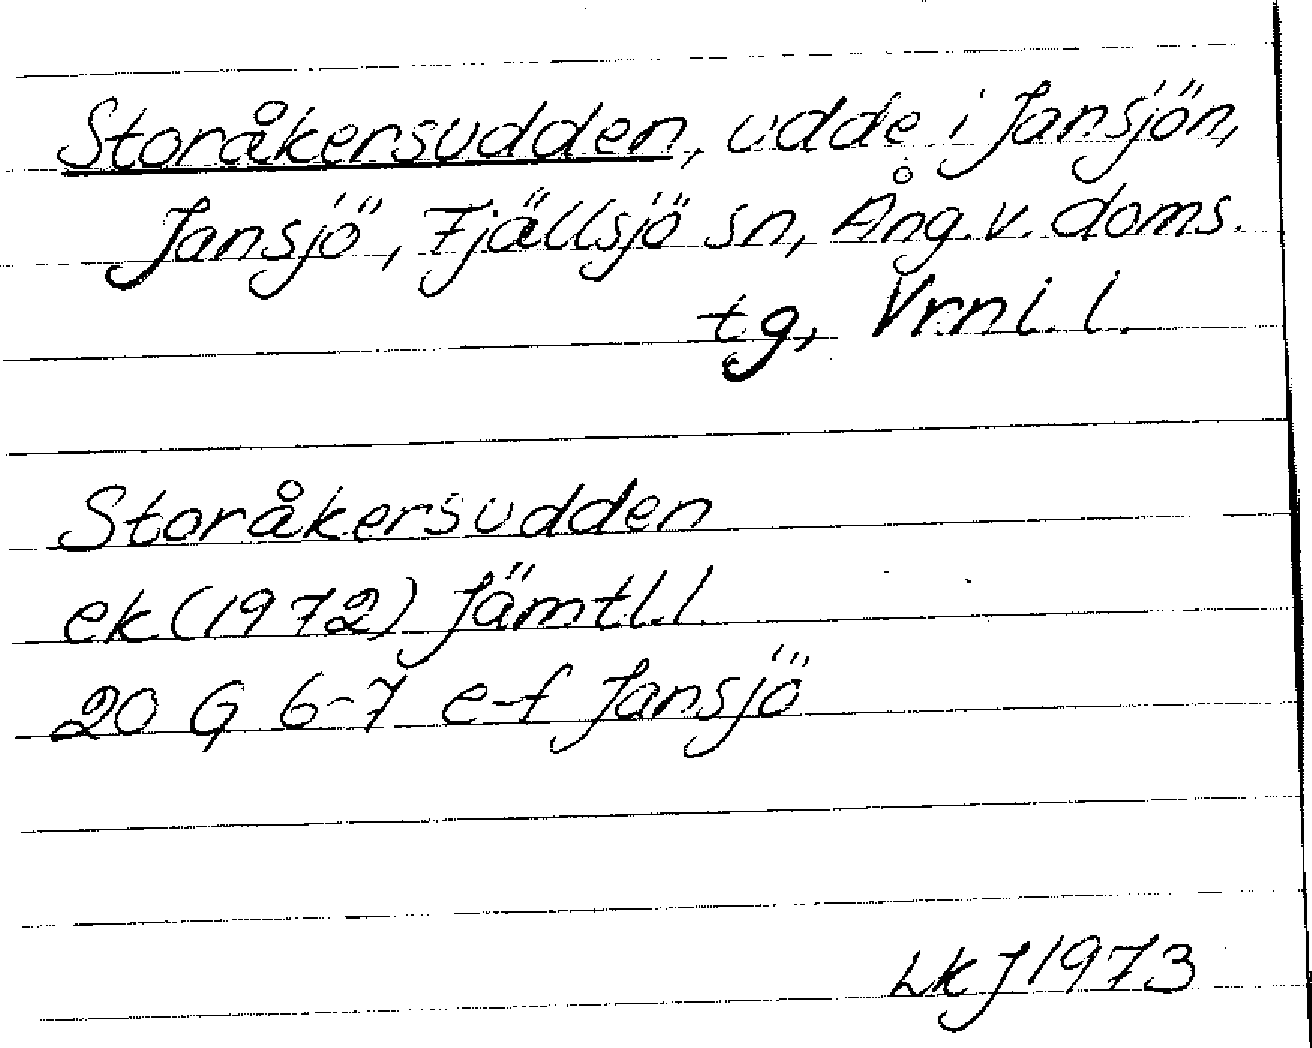 Storåkersudden, udde i Jansjön,
Jansjö, Fjällsjö sn, Ång. v. doms.
tg, Vrnl. l.
Storåkersudden
ek (1972) Jämtl. l.
20 G 6-7 e-f Jansjö
LkJ 1973